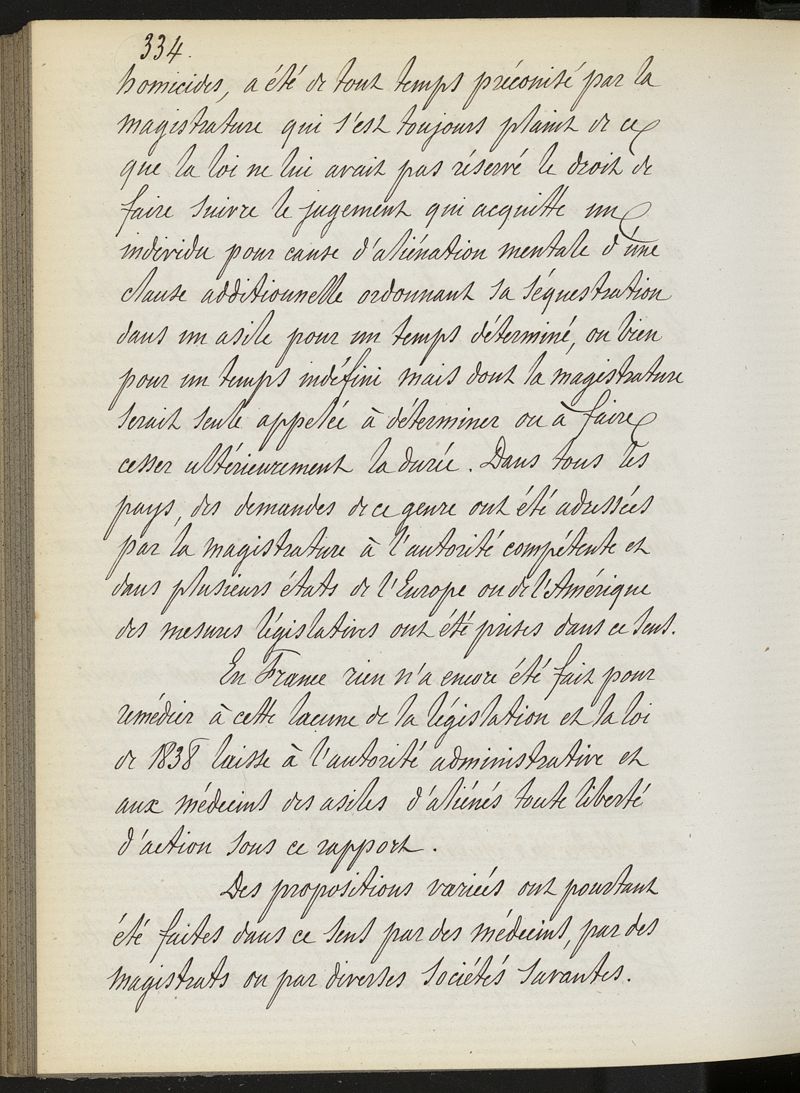 334.
homicides, a été de tout temps préconisé par la
magistrature qui s'est toujours plaint de ce
que la loi ne lui avait pas réservé le droit de
faire suivre le jugement qui acquitte un
individu pour cause d'aliénation mentale d'une
clause additionnelle ordonnant sa séquestration
dans un asile pour un temps déterminé, ou bien
pour un temps indéfini mais dont la magistrature
serait seule appelée à déterminer ou à faire
cesser ultérieurement la durée. Dans tous les
pays, des demandes de ce genre ont été adressées
par la magistrature à l'autorité compétente et
dans plusieurs états de l'Europe ou de l'Amérique
des mesures législatives ont été prises dans ce sens.
En France rien n'a encore été fait pour
remédier à cette lacune de la législation et la loi
de 1838 laisse à l'autorité administrative et
aux médecins des asiles d'aliénés toute liberté
d'action sous ce rapport.
Des propositions variées ont pourtant
été faites dans ce sens par des médecins, par des
magistrats ou par diverses sociétés savantes.